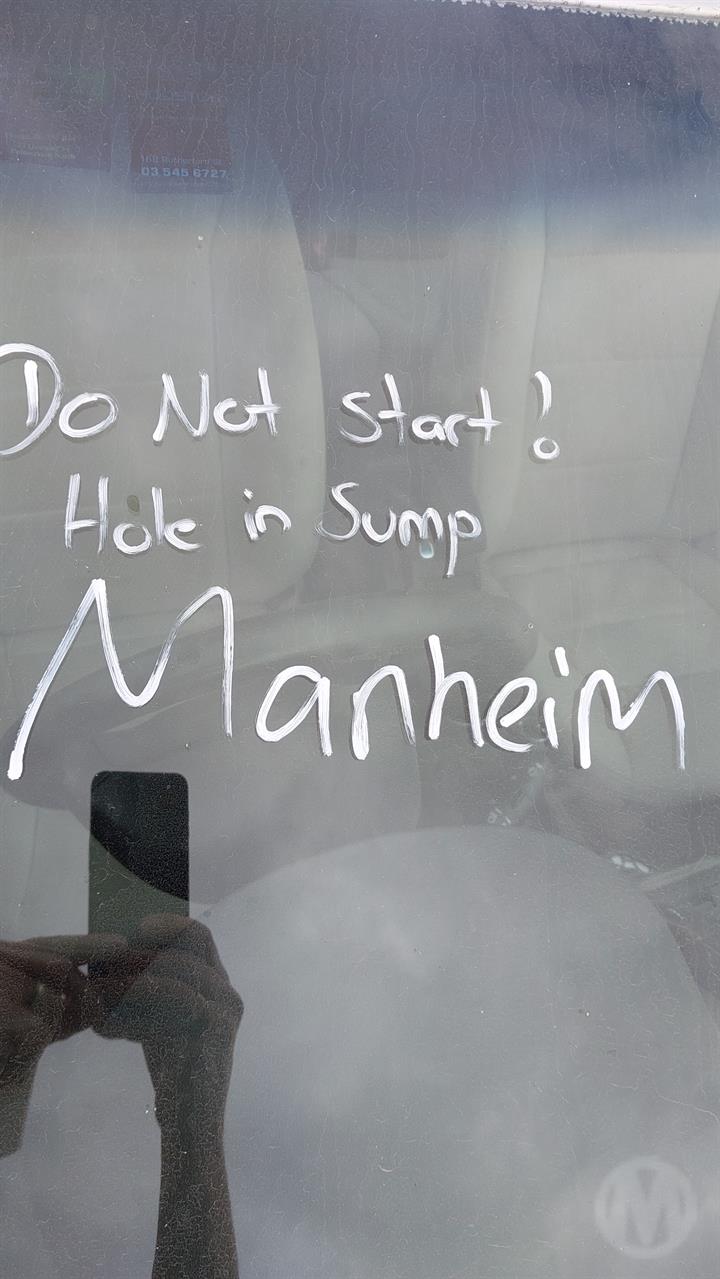 168 Rutherford St
03 545 6727
Do Not Start!
Hole in Sump
Manheim
M